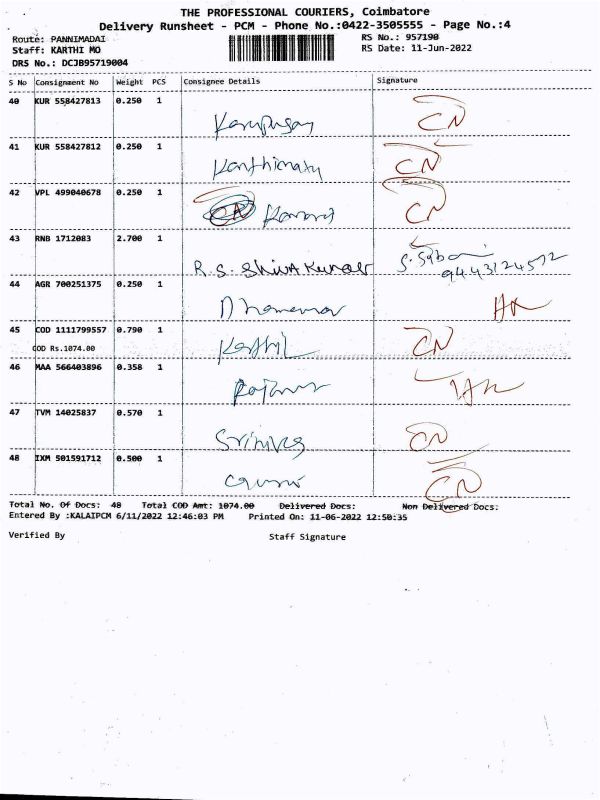 THE PROFESSIONAL COURIERS, Coimbatore
Delivery Runsheet - PCM - Phone No.:0422-3505555 - Page No.:4
Route: PANNIMADAI RS No.: 957190
Staff: KARTHI MO RS Date: 11-Jun-2022
DRS No.: DCJB95719004
S No Consignment No Weight PCS Consignee Details Signature
40 KUR 558427813 0.250 1
CN
41 KUR 558427812 0.250 1
CN
42 VPL 499040678 0.250 1
CN CN
43 RNB 1712083 2.700 1
R. S. Shiva Kumar
44 AGR 700251375 0.250 1
45 COD 1111799557 0.790 1
COD Rs.1074.00 CN
46 MAA 566403896 0.358 1
47 TVM 14025837 0.570 1
CN
48 IXM 501591712 0.500 1
CN
Total No. Of Docs: 48 Total COD Amt: 1074.00 Delivered Docs: Non Delivered Docs:
Entered By :KALAIPCM 6/11/2022 12:46:03 PM Printed On: 11-06-2022 12:50:35
Verified By Staff Signature